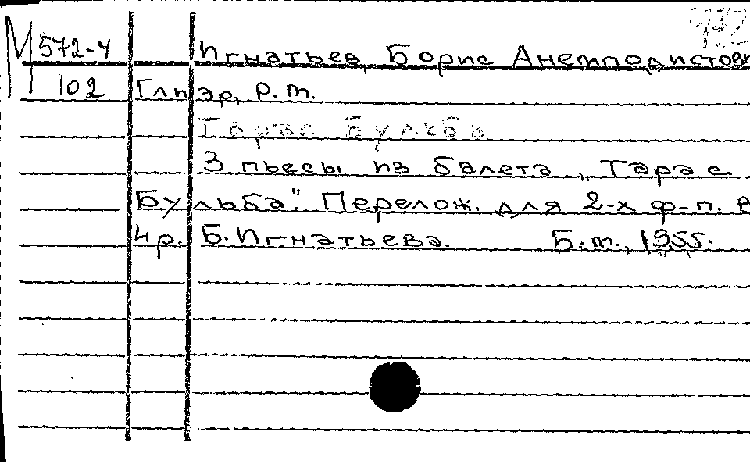 М 572-4 Игнатьев, Борис Анемподистов
102 Глиэр, Р. М.
Тарас Бульба
3 пьесы из балета „Тарас
Бульба". Перелож. для 2-х ф-п. в
4 р. Б. Игнатьева. Б. м., 1955.